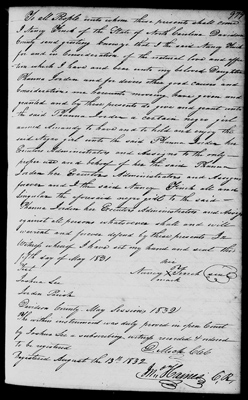 To all People unto whom these presents shall come
I Nancy of the State of North Carolina Davidson
County send greeting Knowye that I the said Nancy
for and in consideration of the natural love and affec
tion which I have and bear unto my beloved Daughter
Jordan and for divers other good causes and
considerations me hereunto moving have given and
granted and by these presents do give and grant unto
the said Jordan a certain negro girl
named to have and to hold and enjoy the
said Negro girl unto the said Jordan her
Executors Administrators and assigns to the only
proper use and behoof of her the said
Jordan her Executors Administrators and assigns
forever and I the said Nancy all and
singular the aforesaid negro girl to the said
Jordan her Executors Administrators and assigns
against all persons whatsoever shall and will
warrant and forever defend by these presents In
Witness whereof I have set my hand and seal the
day of May 1831
her
Nancy X
mark
Test
Joshua Lee
Davidson County May Sessions 1832
The within instrument was duly proved in open Court
by Joshua Lee a subscribing witness recorded & ordered
to be registered
D. Mock Clk
Registered August the 13th 1832